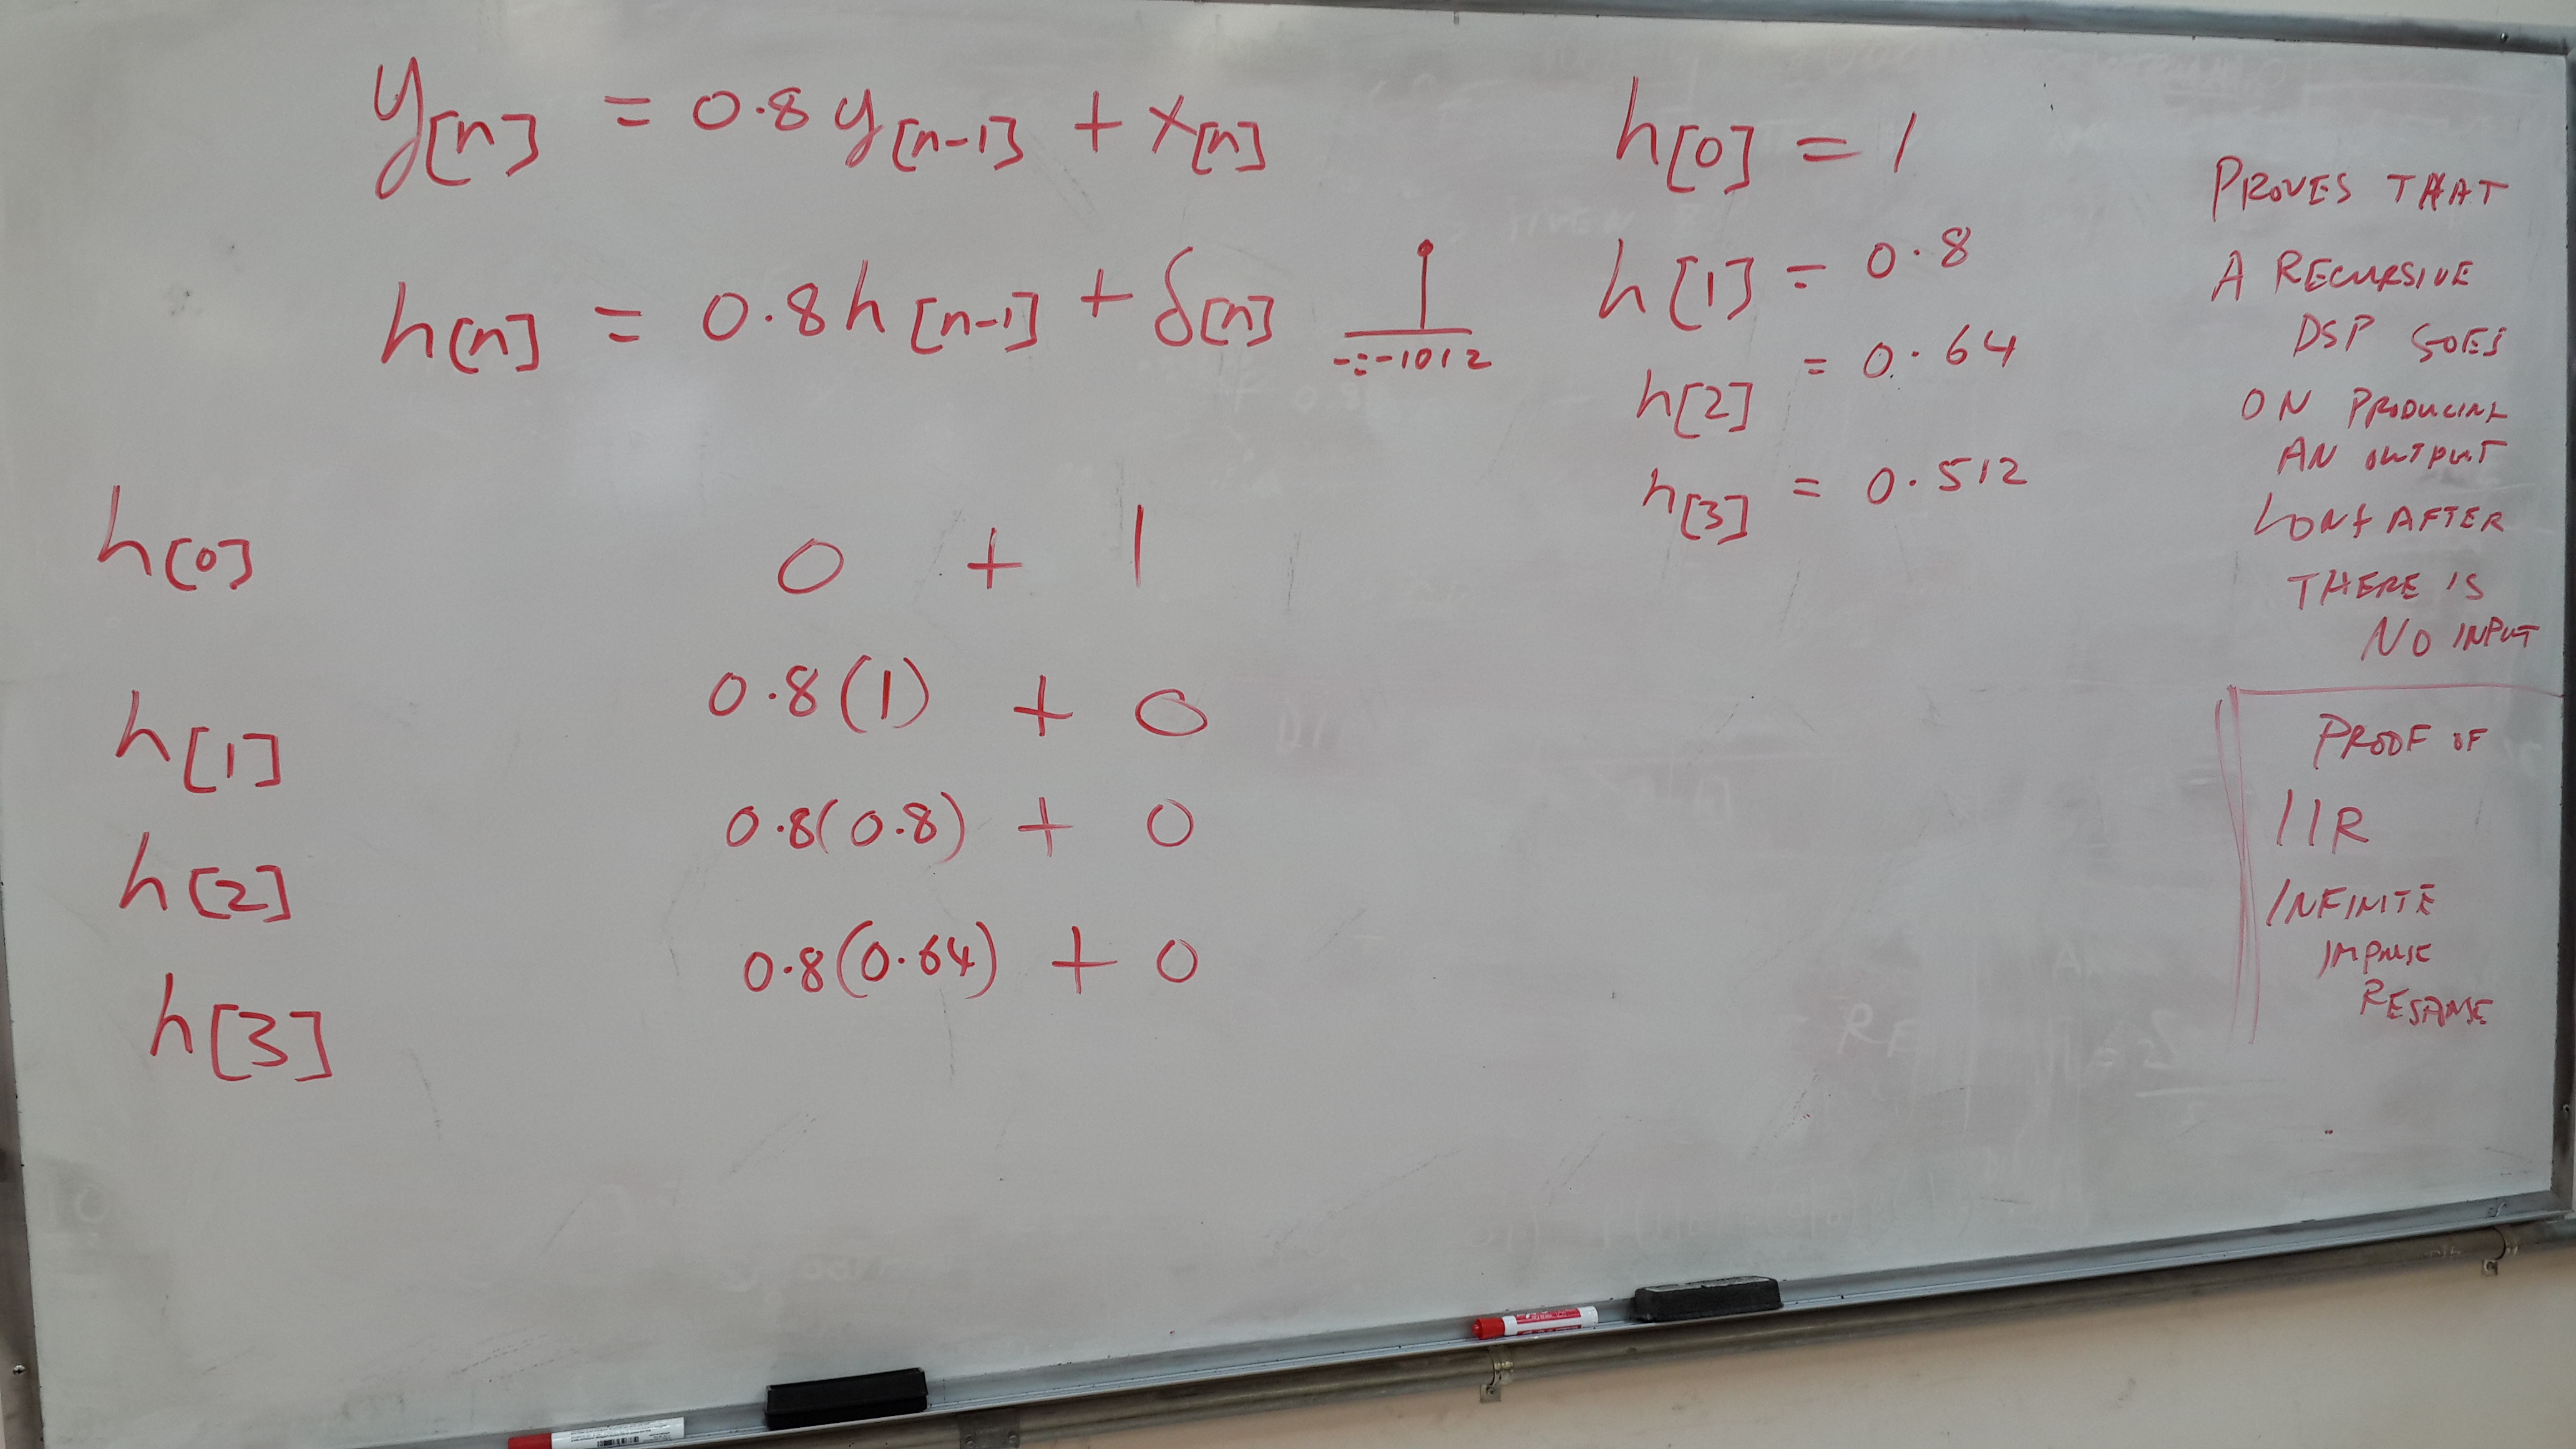 y[n] = 0.8 y[n-1] + x[n]
h[n] = 0.8 h[n-1] + δ[n]
-1 0 1 2
h[0] 0 + 1
h[1] 0.8(1) + 0
h[2] 0.8(0.8) + 0
h[3] 0.8(0.64) + 0
h[0] = 1
h[1] = 0.8
h[2] = 0.64
h[3] = 0.512
PROVES THAT
A RECURSIVE
DSP GOES
ON PRODUCING
AN OUTPUT
LONG AFTER
THERE IS
NO INPUT
PROOF OF
IIR
INFINITE
IMPULSE
RESPONSE